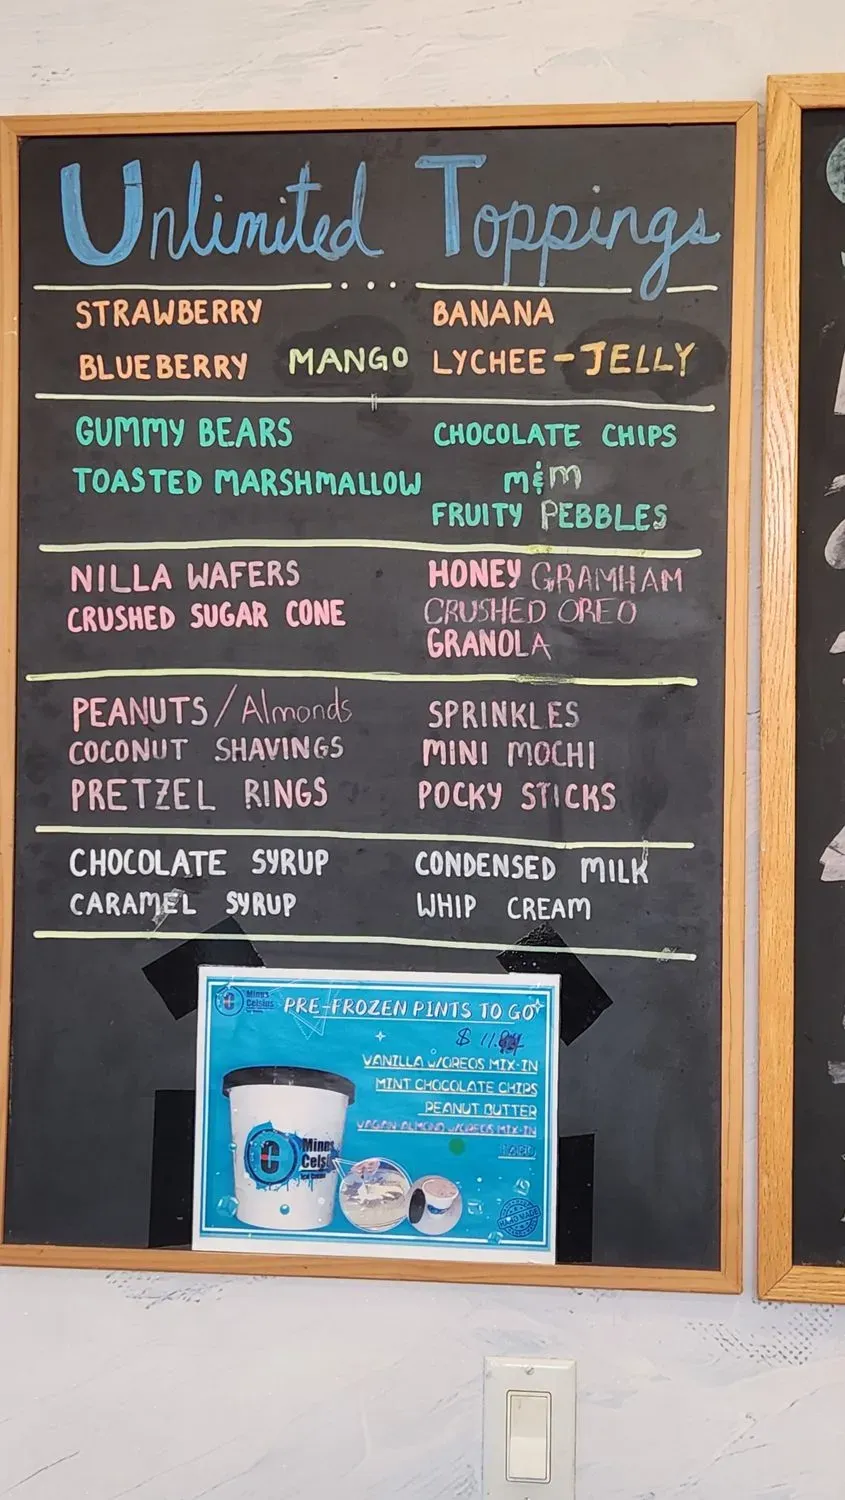 Unlimited Toppings
STRAWBERRY BANANA
BLUEBERRY MANGO LYCHEE-JELLY
GUMMY BEARS CHOCOLATE CHIPS
TOASTED MARSHMALLOW m&m
FRUITY PEBBLES
NILLA WAFERS HONEY GRAMHAM
CRUSHED SUGAR CONE CRUSHED OREO
GRANOLA
PEANUTS/Almonds SPRINKLES
COCONUT SHAVINGS MINI MOCHI
PRETZEL RINGS POCKY STICKS
CHOCOLATE SYRUP CONDENSED MILK
CARAMEL SYRUP WHIP CREAM
Minus
Celsius
PRE-FROZEN PINTS TO GO
VANILLA W/OREOS MIX-IN
MINT CHOCOLATE CHIPS
PEANUT BUTTER
VAGAN-ALMOND W/OREOS MIX-IN
TARO
C Minus
Celsius
HAND MADE